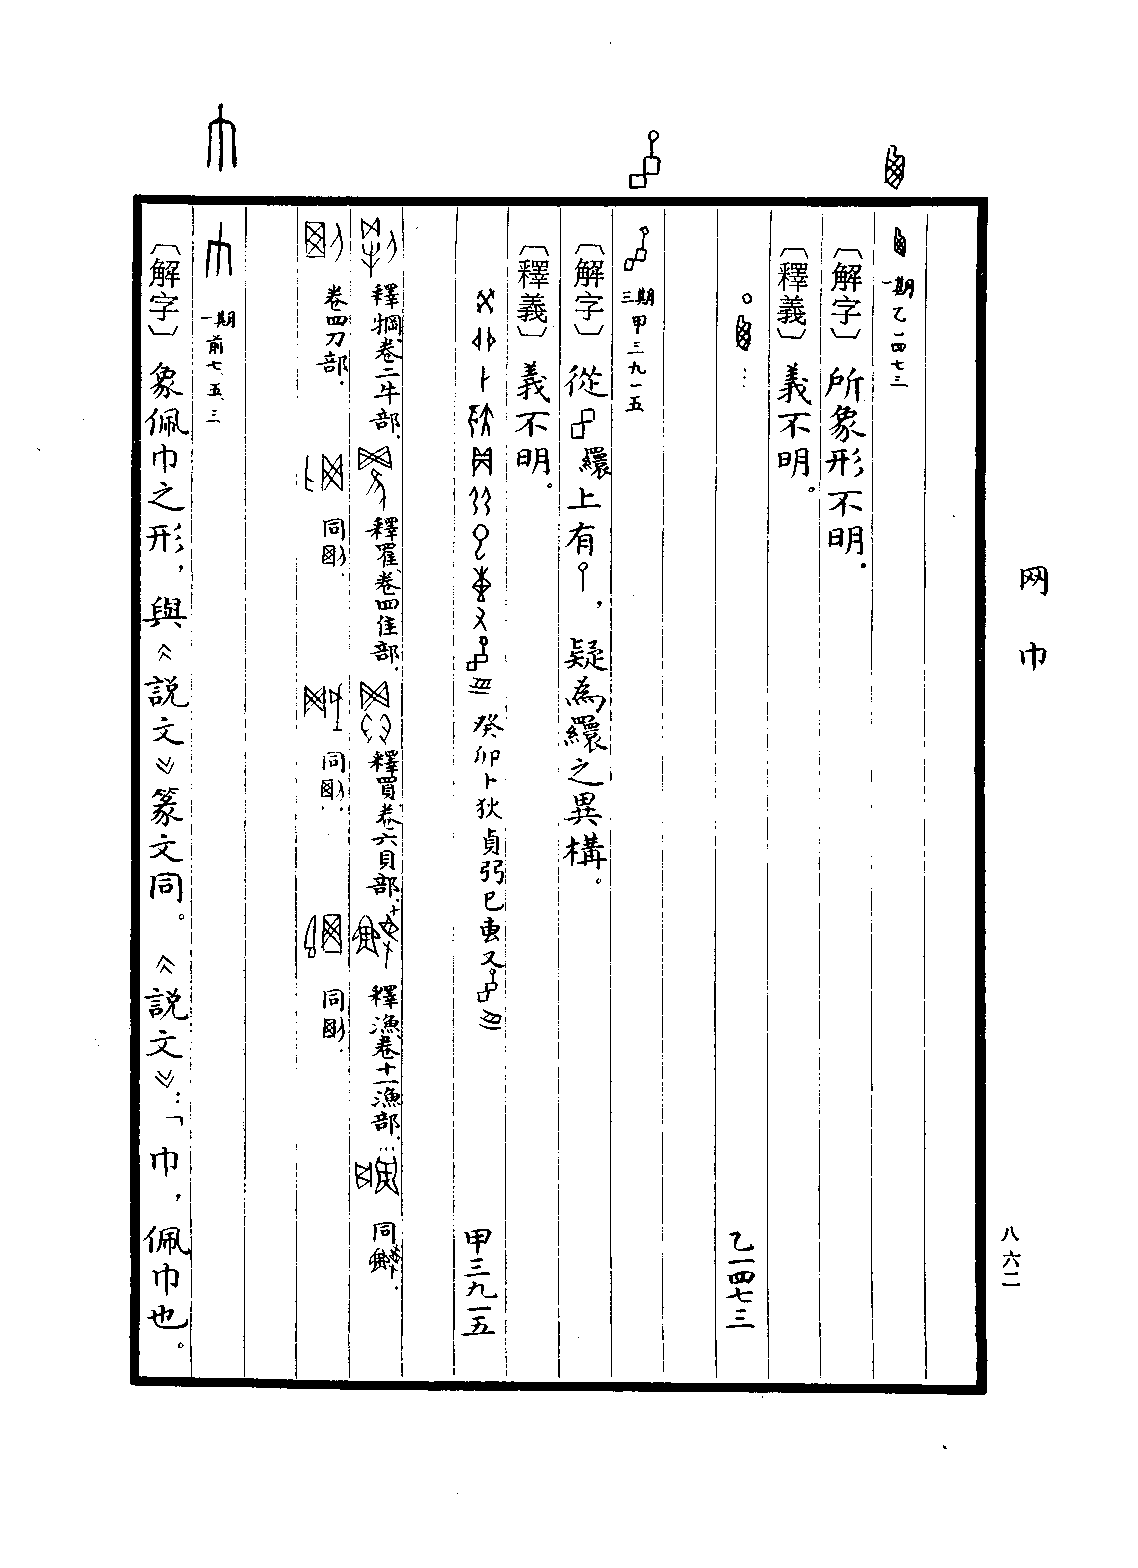 网 巾
八六二
一期 乙一四七三
〔解字〕所象形不明．
〔釋義〕義不明。
乙一四七三
三期 甲三九一五
〔解字〕從 繯上有 ，疑為繯之異構。
〔釋義〕義不明。
癸卯卜狄貞弜巳叀又 甲三九一五
釋㹶卷二牛部． 釋䍜卷四隹部． 釋買卷六貝部． 釋漁卷十一漁部． 同
卷四刀部． 同 ． 同 ． 同 ．
一期 前七．五．三
〔解字〕象佩巾之形，與《説文》篆文同。《説文》：「巾，佩巾也。